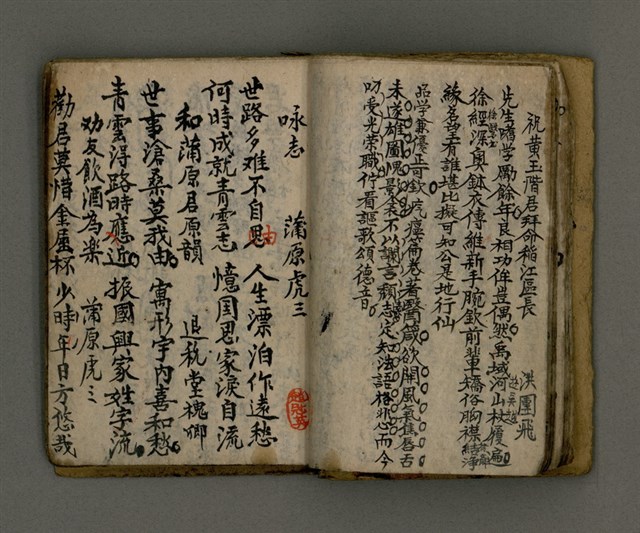 祝黃玉階君拜命稻江區長
洪團飛
先生嗜学勵餘年良相功侔豈偶然禹域河山杖履遍
徐經深奧鉢衣傳維新手腕欽前輩矯俗胸襟結淨
緣名望有誰堪比擬可知公是地行仙
品学兼優正可欽疙瘼篇卷著醫箴欲開風氣焦唇舌
未遂雄圖愧景衾不以讕言頹志定知法語格非心而今
叨受光榮職佇看謳歌頌德音
咏志
蒲原虎三
世路多难不自由人生漂泊作遠愁
何時成就青雲志憶国思家淚自流
和蒲原君原韻
退秋堂槐卿
世事滄桑莫我由寓形宇內喜和愁
青雲得路時應近振國興家姓字流
劝友飲酒為樂
蒲原虎三
勸君莫惜金屋杯少時年日方悠哉